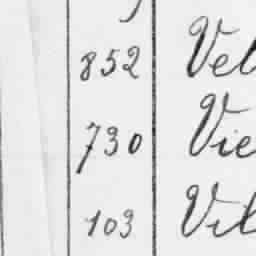 852 Vel
730 Vie
103 Vil